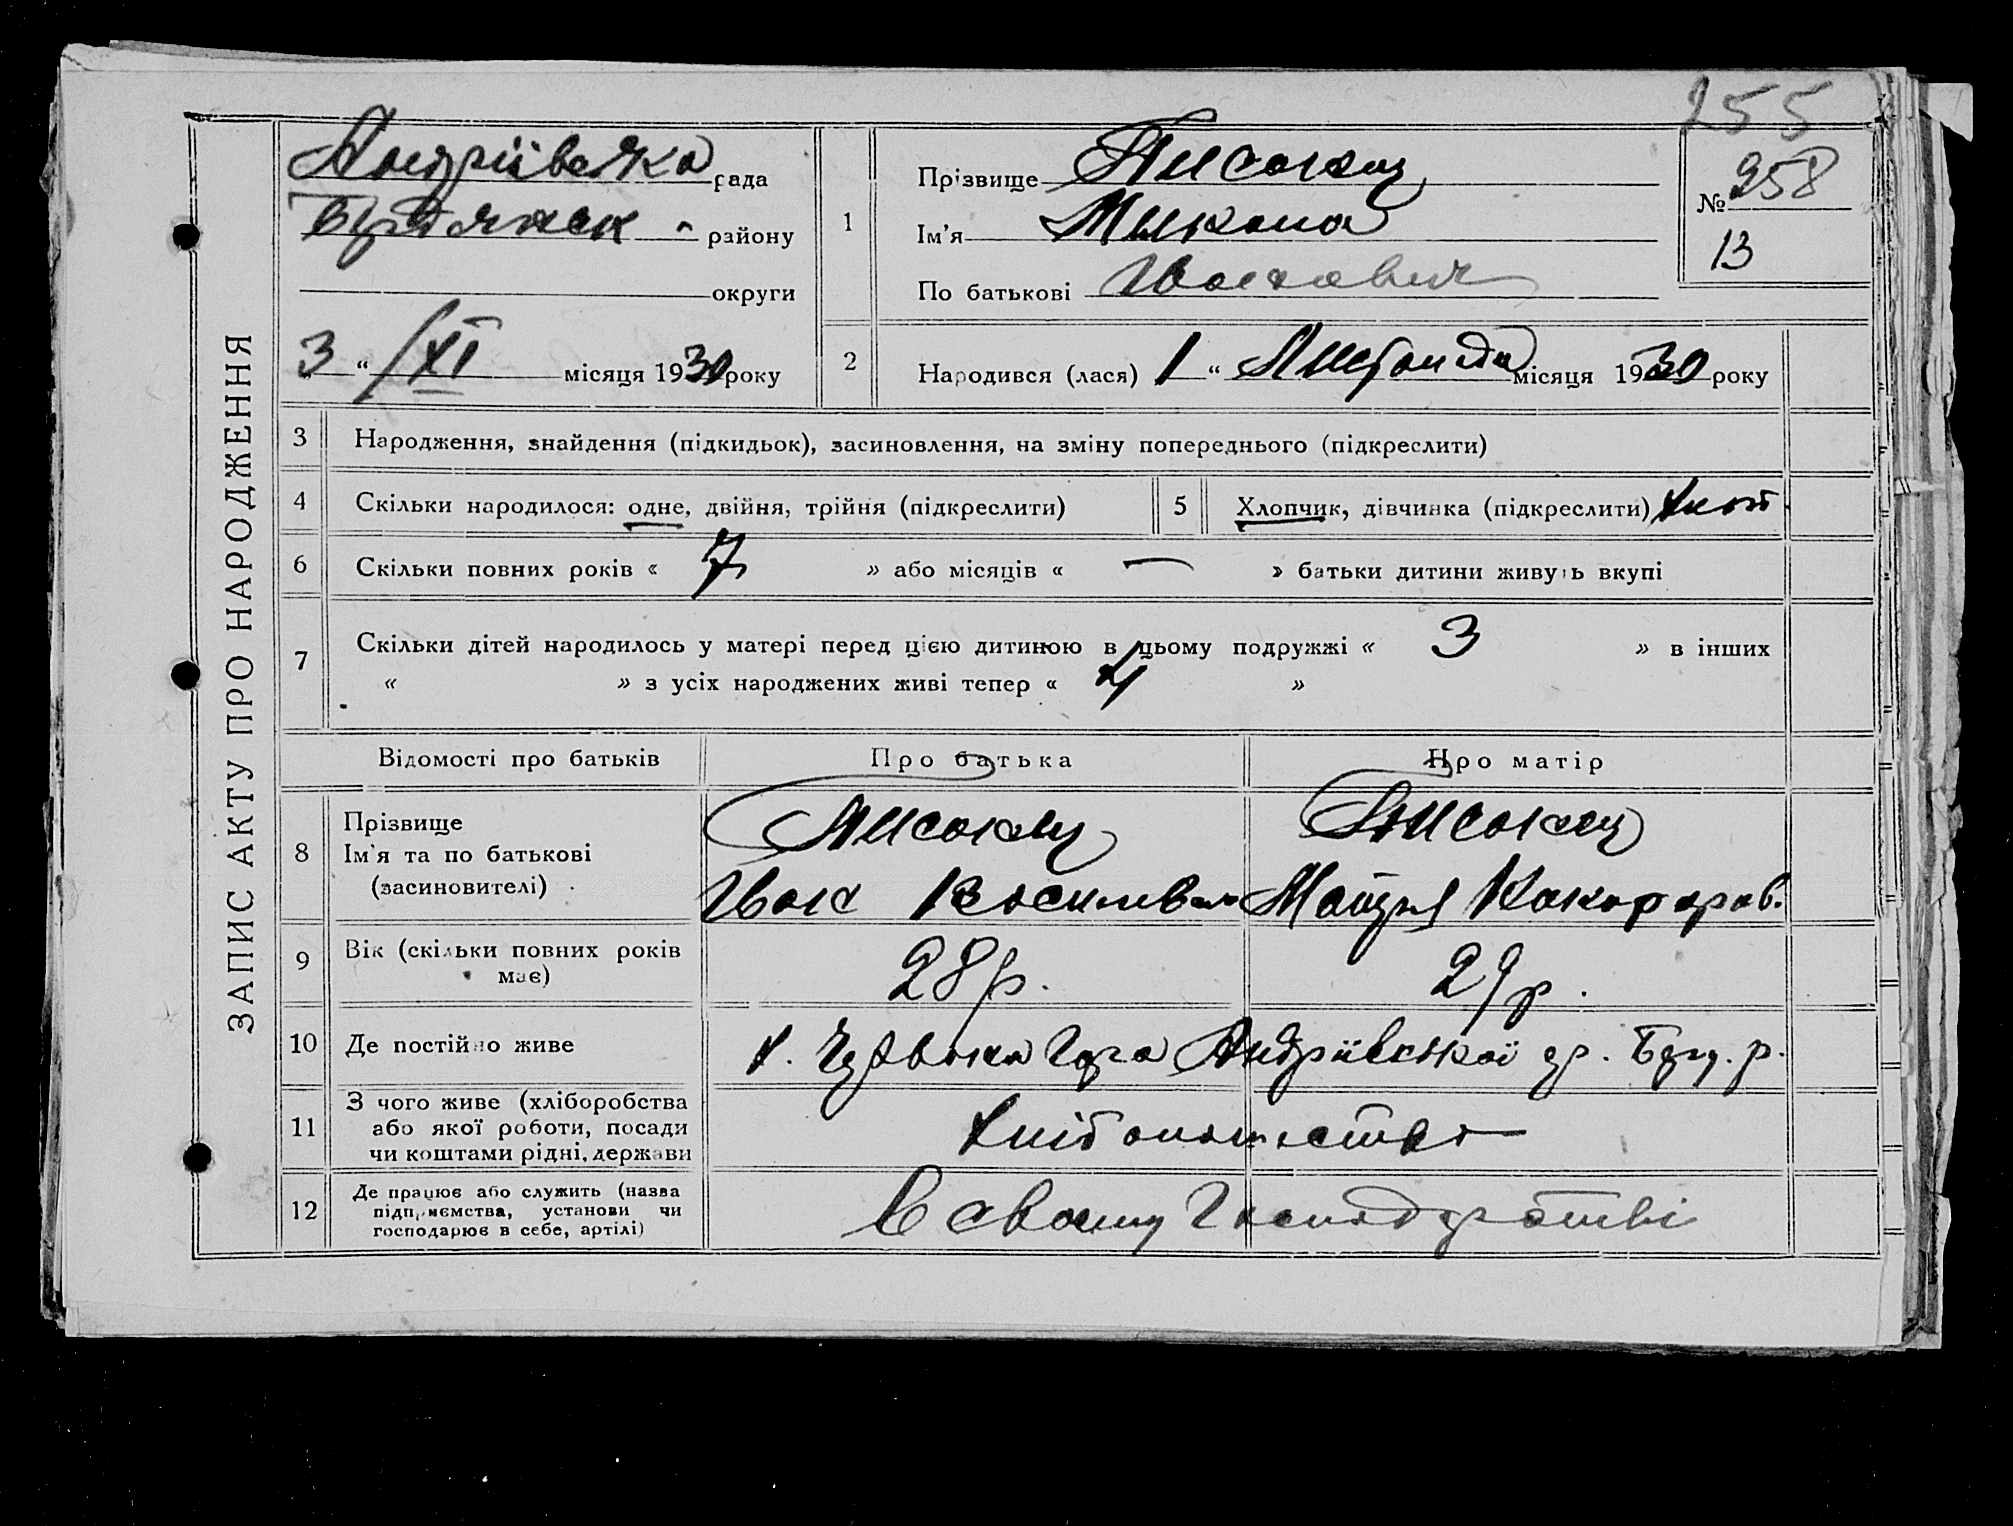 255
ЗАПИС АКТУ ПРО НАРОДЖЕННЯ
Андріївська рада
району
округи
3 “ /XI місяця 1930 року
1
Прізвище
Ім'я Микола
По батькові Іванович
№ 258
13
2
Народився (лася) 1 “ Листопада місяця 1930 року
3 Народження, знайдення (підкидьок), засиновлення, на зміну попереднього (підкреслити)
4 Скільки народилося: одне, двійня, трійня (підкреслити) 5 Хлопчик, дівчинка (підкреслити) хлоп.
6 Скільки повних років « 7 » або місяців « — » батьки дитини живуть вкупі
7 Скільки дітей народилось у матері перед цією дитиною в цьому подружжі « 3 » в інших
« » з усіх народжених живі тепер « 4 »
Відомості про батьків Про батька Про матір
8 Прізвище
Ім'я та по батькові Іван Василев
(засновителі)
9 Вік (скільки повних років має) 28 р. 29 р.
10 Де постійно живе х. Гора Андріївської
11 З чого живе (хліборобства
або якої роботи, посади
чи коштами рідні, держави
12 Де працює або служить (назва
підприємства, установи чи
господарює в себе, артілі) В своему Господарстві